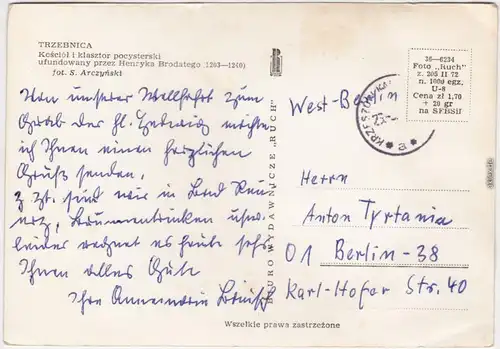 TRZEBNICA
Kościół i klasztor pocysterski
ufundowany przez Henryka Brodatego (1203—1240)
fot. S. Arczyński
Von unserer Wallfahrt zum
Grab der hl. Hedwig möchte
ich Ihnen einen herzlichen
Gruß senden.
z. Zt. sind wir in Bad Rei
nerz, Brunnentrinken usw.
leider regnet es heute sehr.
Ihnen alles Gute
Ihre Annemarie
BIURO WYDAWNICZE „RUCH"
36—6234
Foto „Ruch"
z. 205 II 72
n. 1000 egz.
U-8
Cena zł 1,70
+ 20 gr
na SFBSiI
West-Berlin
Herrn
Anton Tyrtania
01 Berlin-38
Karl-Hofer Str. 40
Wszelkie prawa zastrzeżone